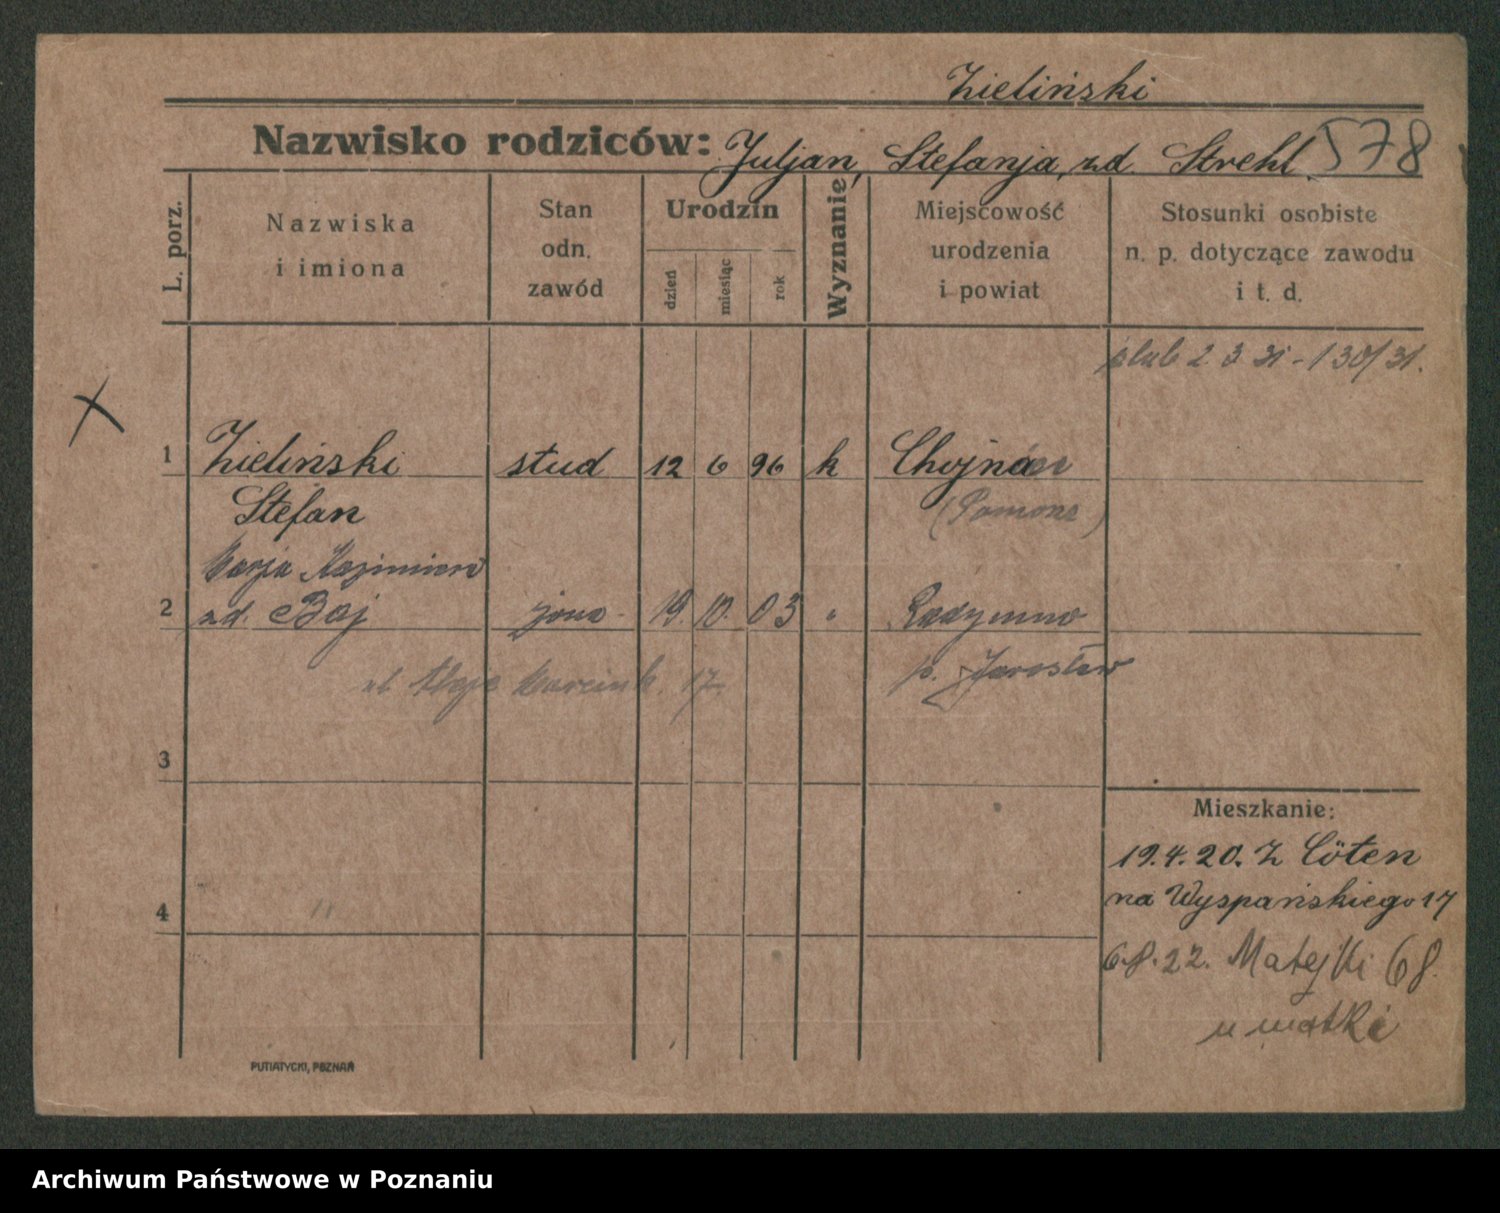 Zieliński
Nazwisko rodziców: Juljan, Stefanja, zd. Strehl. 578
L. porz.
Nazwiska
i imiona
Stan
odn.
zawód
Urodzin
dzień
miesiąc
rok
Wyznanie
Miejscowość
urodzenia
i powiat
Stosunki osobiste
n. p. dotyczące zawodu
i t. d.
ślub 2 3 31 - 130/31.
1 Zieliński stud 12 6 96 k
Stefan
Marja Kazimiera
2 zd. Baj żona 19. 10. 03 " Radymno
ul Aleje Marcink. 17. p. Jarosław
3
Mieszkanie:
19.4.20. Z Cöten
na Wyspańskiego 17
4
6.8.22. Matejki 68.
u matki
PUTIATYCKI, POZNAŃ
Archiwum Państwowe w Poznaniu